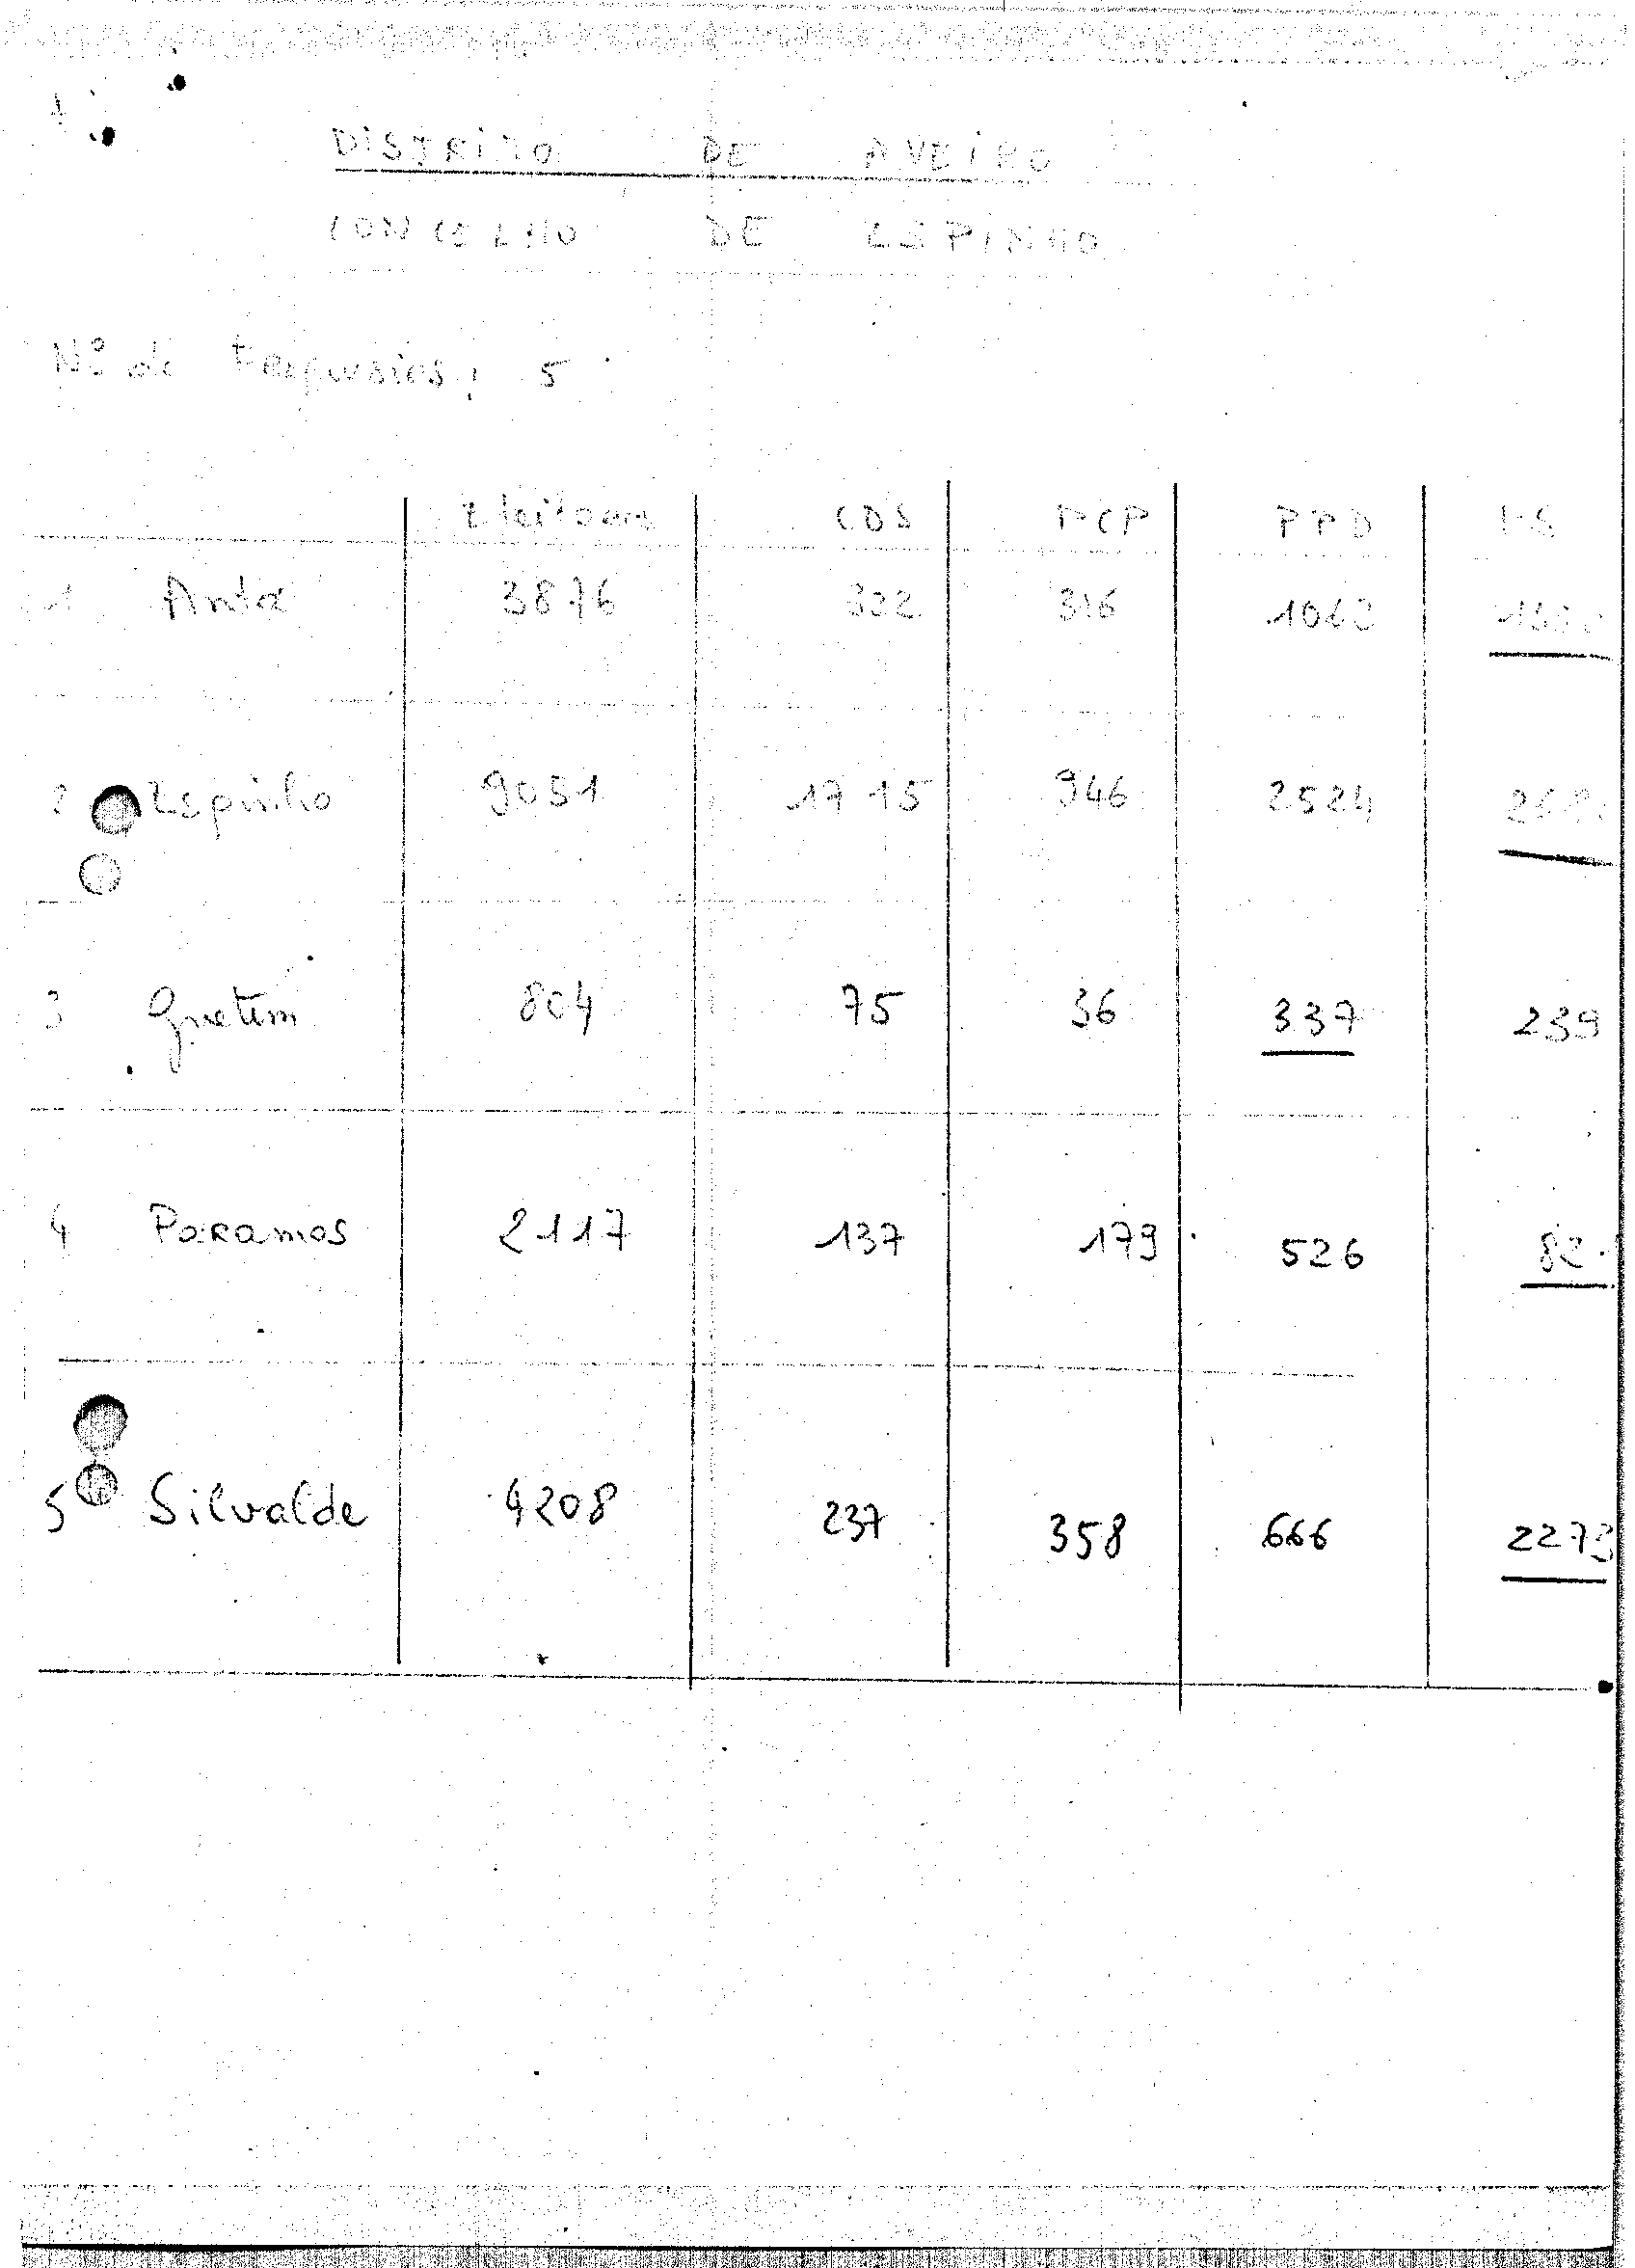 DISTRITO DE AVEIRO
CONCELHO DE ESPINHO
Nº de Freguesias: 5
Eleitores CDS PCP PPD PS
1 Anta 3876 322 316 1063
2 Espinho 9051 1715 946 2524
3 Guetim 804 75 36 337 239
4 Paramos 2117 137 179 526
5 Silvalde 4208 237 358 666 2273